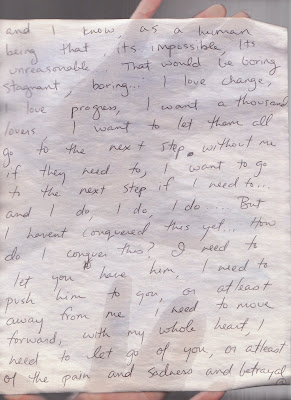 and I know, as a human
being that its impossible, Its
unreasonable... That would be boring
stagnant, boring... I love change,
I love progress, I want a thousand
lovers, I want to let them all
go to the next step. without me
if they need to, I want to go
to the next step if I need to...
and I do, I do, I do..... But
I havent conquered this yet... How
do I conquer this? I need to
let you have him, I need to
push him to you, or atleast
away from me I need to move
forward, with my whole heart, I
need to let go of you, or atleast
of the pain and sadness and betrayal